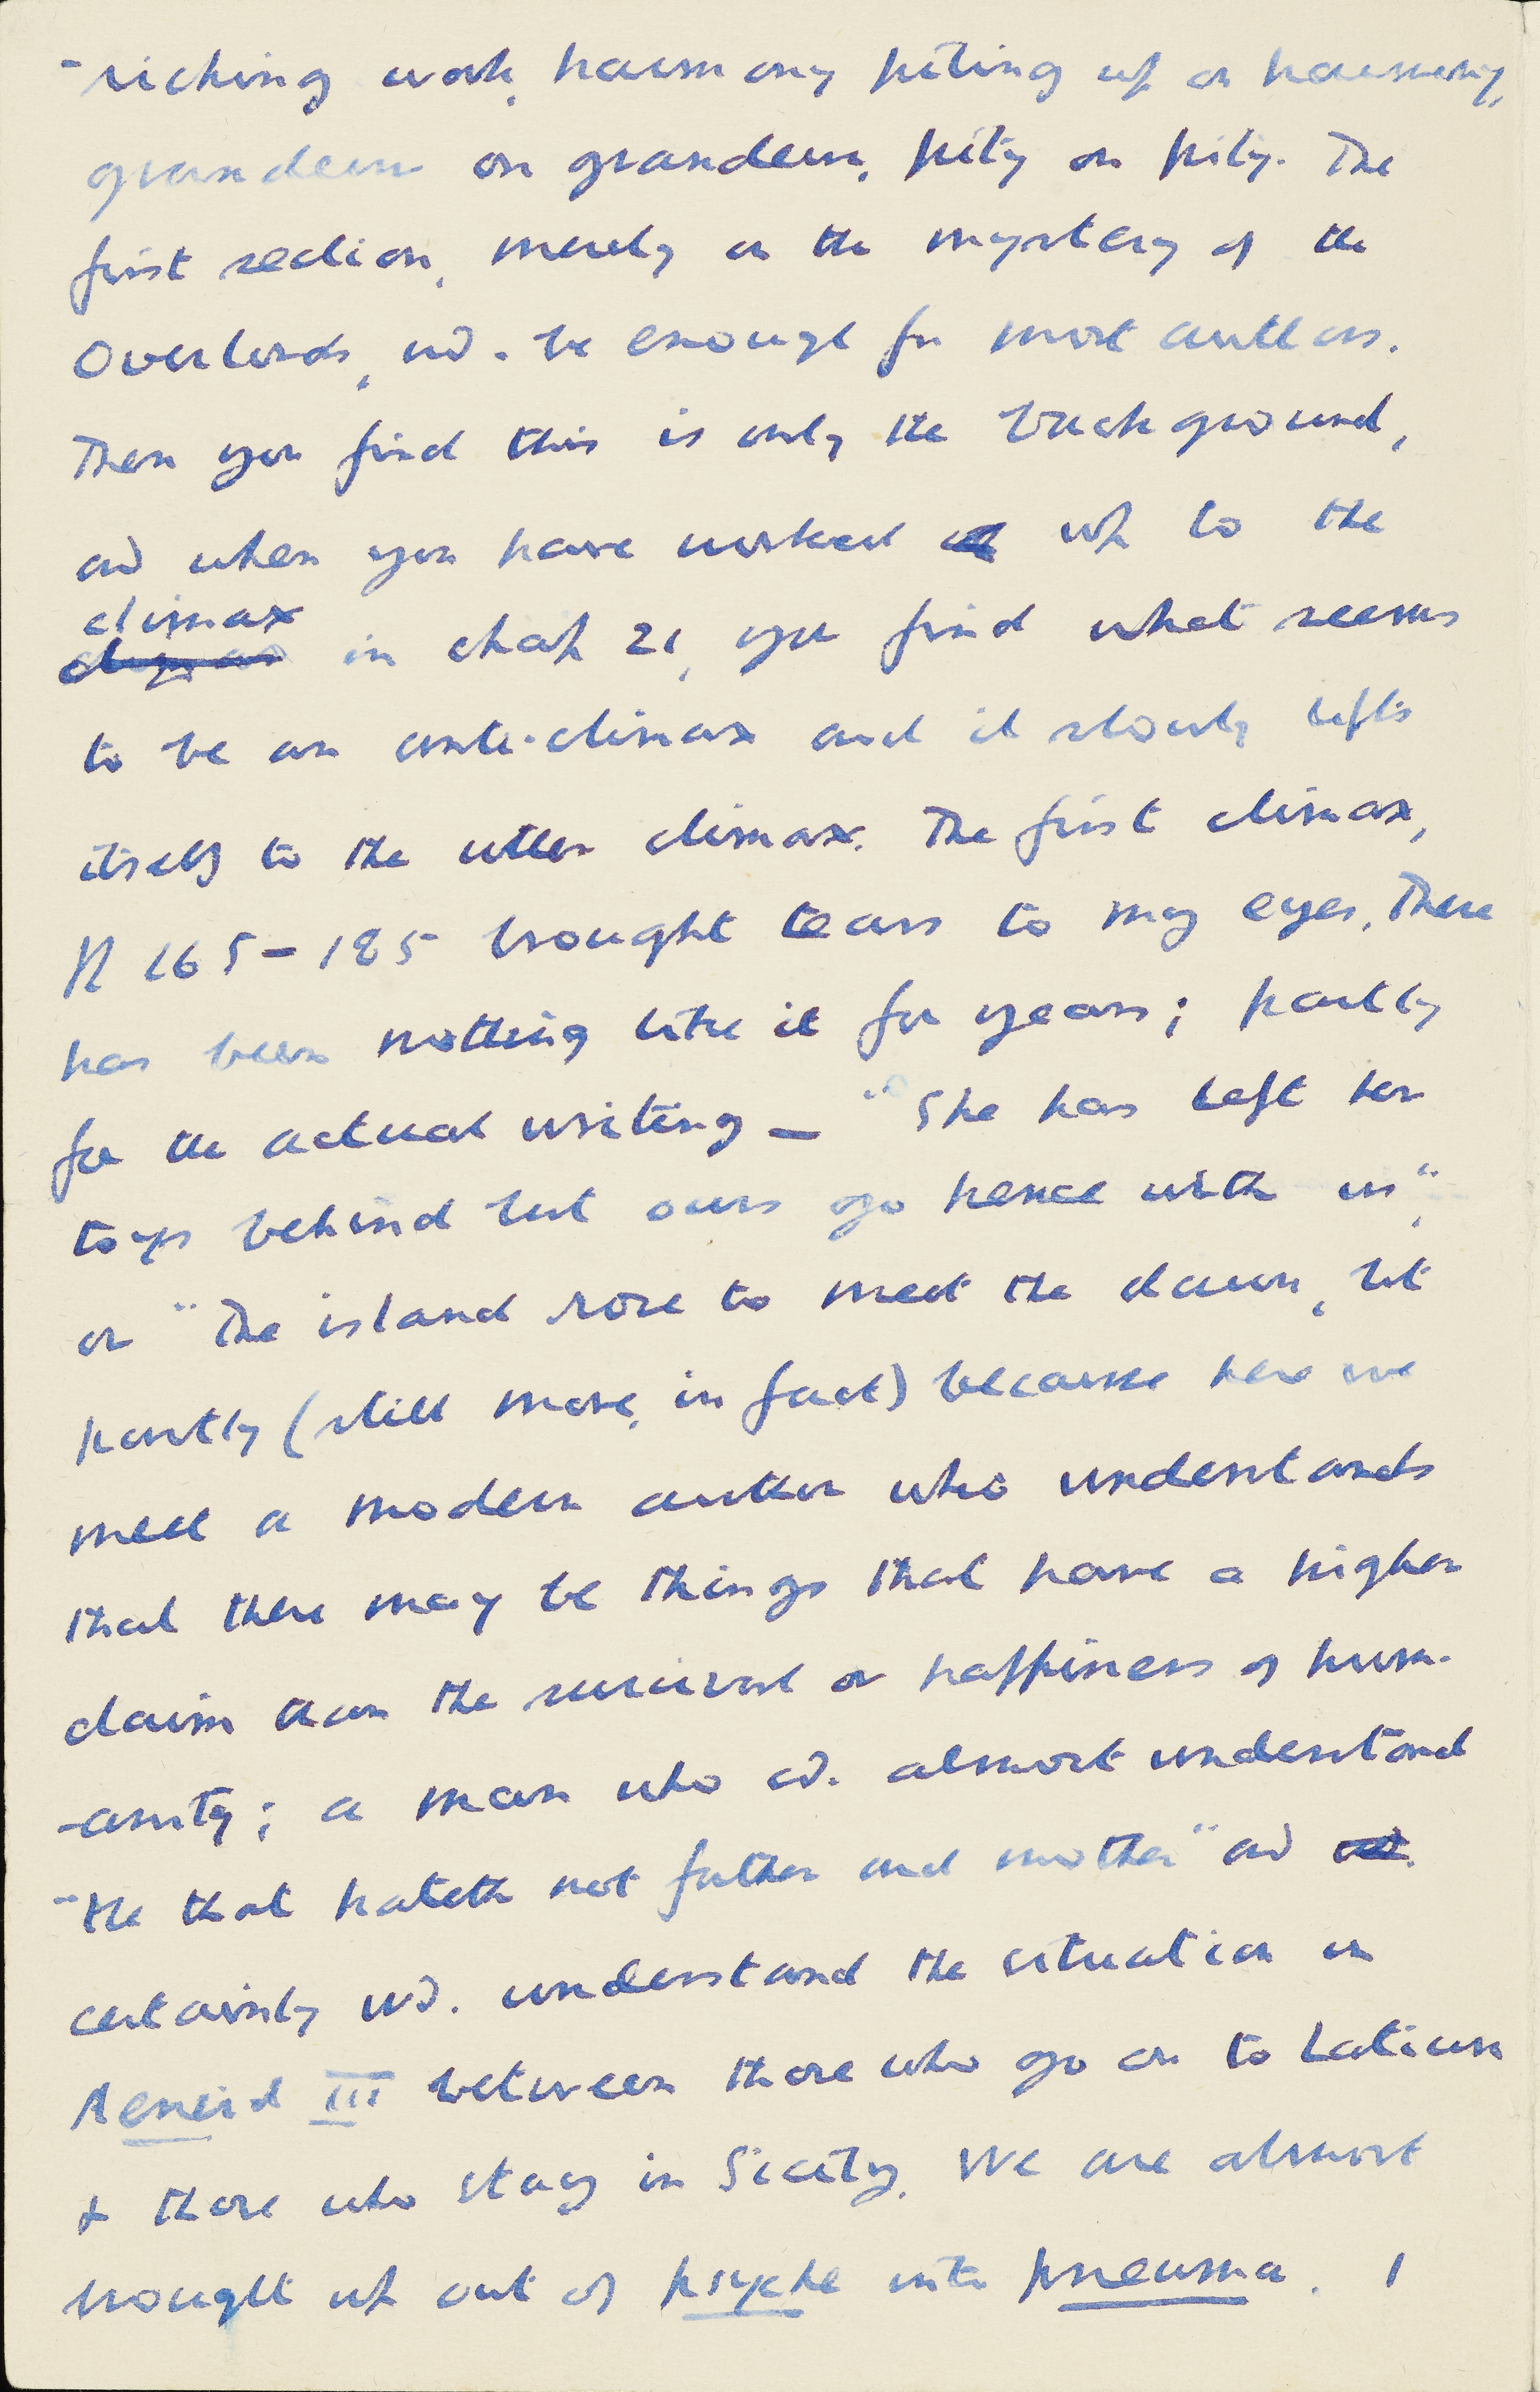 -riching work, harmony piling up on harmony,
grandeur on grandeur, pity on pity. The
first section, merely on the mystery of the
Overlords, wd. be enough for most authors.
Then you find this is only the background,
and when you have worked up to the
climax in chap 21, you find what seems
to be an anti-climax and it slowly lifts
itself to the utter climax. The first climax,
pp 165-185 brought tears to my eyes. There
has been nothing like it for years; partly
for the actual writing – "She has left her
toys behind but ours go hence with us",
or "The island rose to meet the dawn, but
partly (still more, in fact) because here we
meet a modern author who understands
that there may be things that have a higher
claim than the survival or happiness of hum-
-anity; a man who cd. almost understand
"He that hateth not father and mother" and
certainly wd. understand the situation in
Aeneid III between those who go on to Latium
& those who stay in Sicily. We are almost
brought up out of psyche into pneuma. I